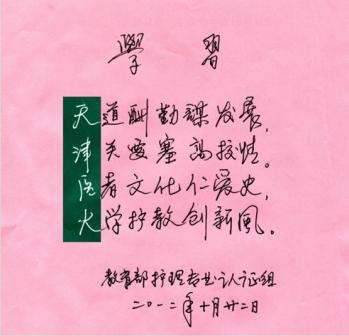 學習
天道酬勤謀发展，
津关要塞高投情。
医者文化仁爱史，
大学护教创新風。
教育部护理专业认证组
二〇一二年十月廿二日